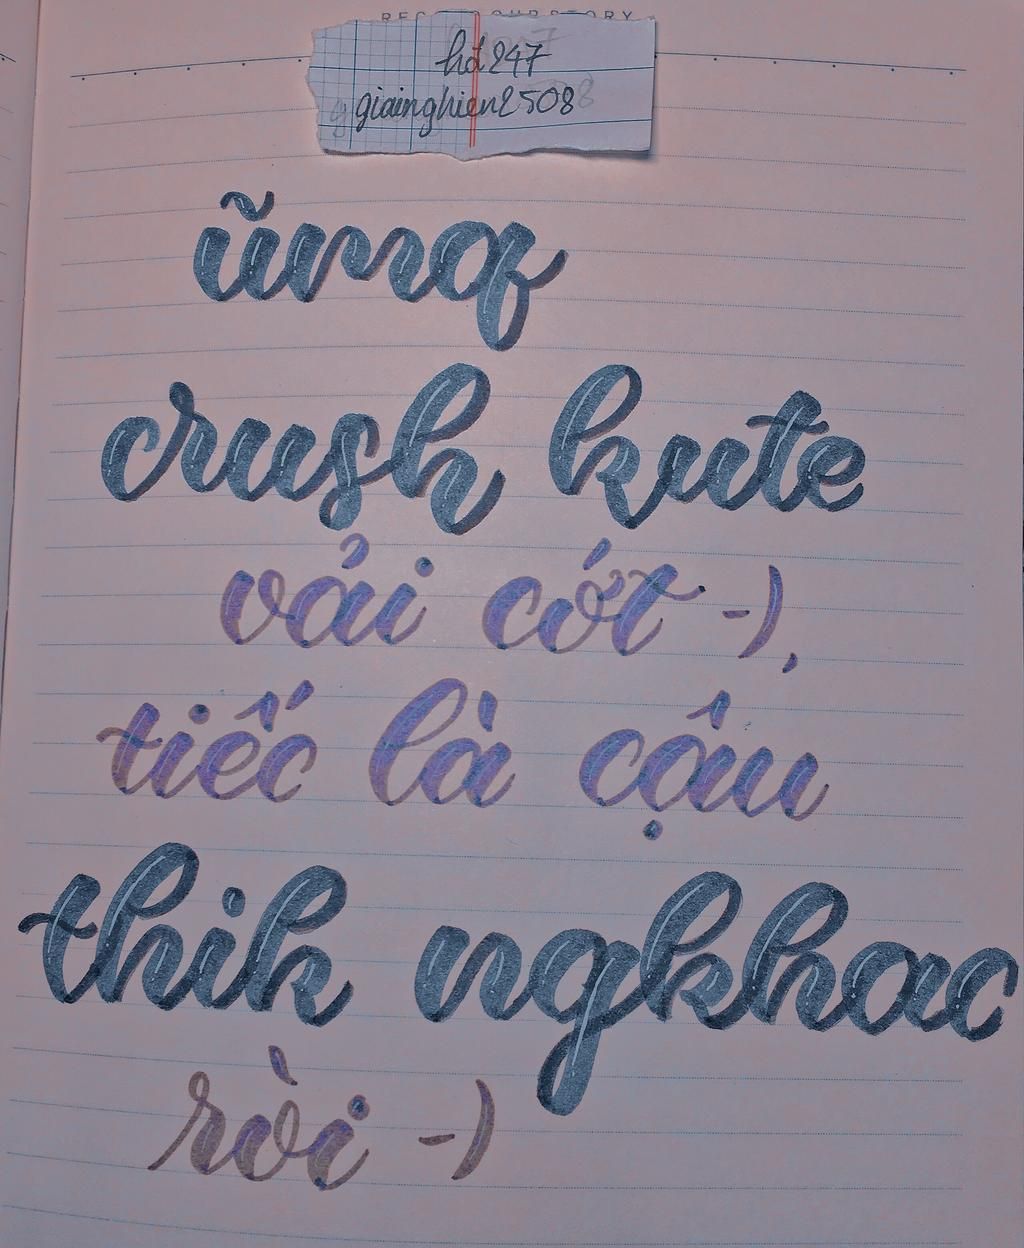 hđ247
giainghien2508
ũmq
crush kute
vải cớt -),
tiếc là cậu
thik ngkhac
rời -)